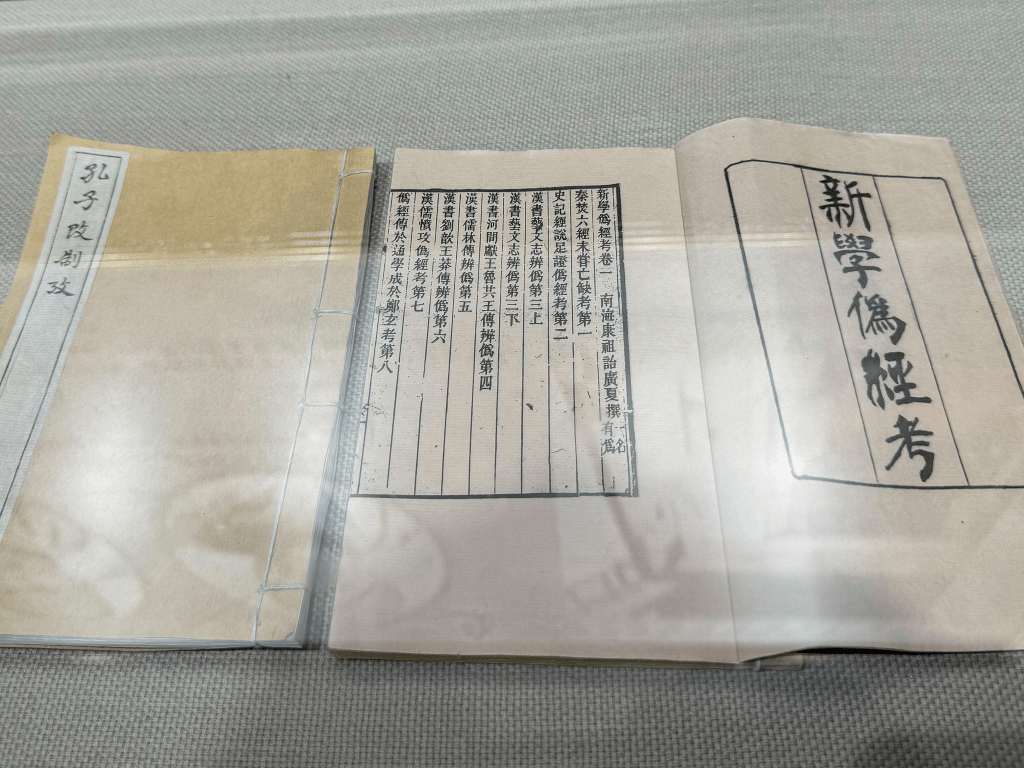 新學僞經考
新學僞經考卷一 南海康祖詒廣夏撰一名有爲
秦焚六經未嘗亡缺考第一
史記經說足證僞經考第二
漢書藝文志辨僞第三上
漢書藝文志辨僞第三下
漢書河間獻王魯共王傳辨僞第四
漢書儒林傳辨僞第五
漢書劉歆王莽傳辨僞第六
漢儒憤攻僞經考第七
僞經傳於通學成於鄭玄考第八
孔子改制攷